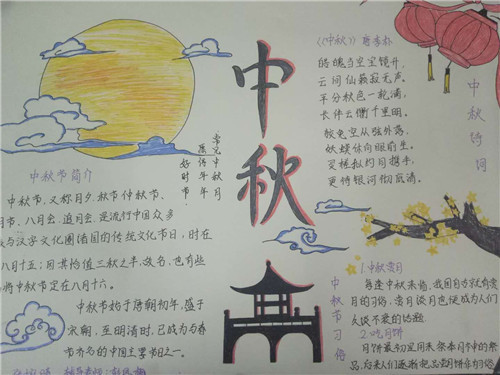 中秋
中秋节简介
中秋节、又称月夕、秋节、仲秋节、
月节、八月会、追月会、是流行中国众多
与汉字文化圈诸国的传统文化节日,时在
八月十五;因其恰值三秋之半,故名,也有些
将中秋节定在八月十六。
中秋节始于唐朝初年,盛于
宋朝,至明清时,已成为与春
节齐名的中国主要节日之一。
好时节
愿得年年
常见中秋月
《中秋》 唐 李朴
皓魄当空宝镜升,
云间仙籁寂无声。
平分秋色一轮满,
长伴云衢千里明。
狡兔空从弦外落,
妖蟆休向眼前生。
灵槎拟约同携手,
更待银河彻底清。
中秋诗词
中秋节习俗
1.中秋赏月
每逢中秋来临,我国自古就有赏
月的习俗,赏月谈月也便成为人们
久谈不衰的话题
2.吃月饼
月饼最初是用来祭奉月神的祭
品,后来人们逐渐把品尝月饼作为